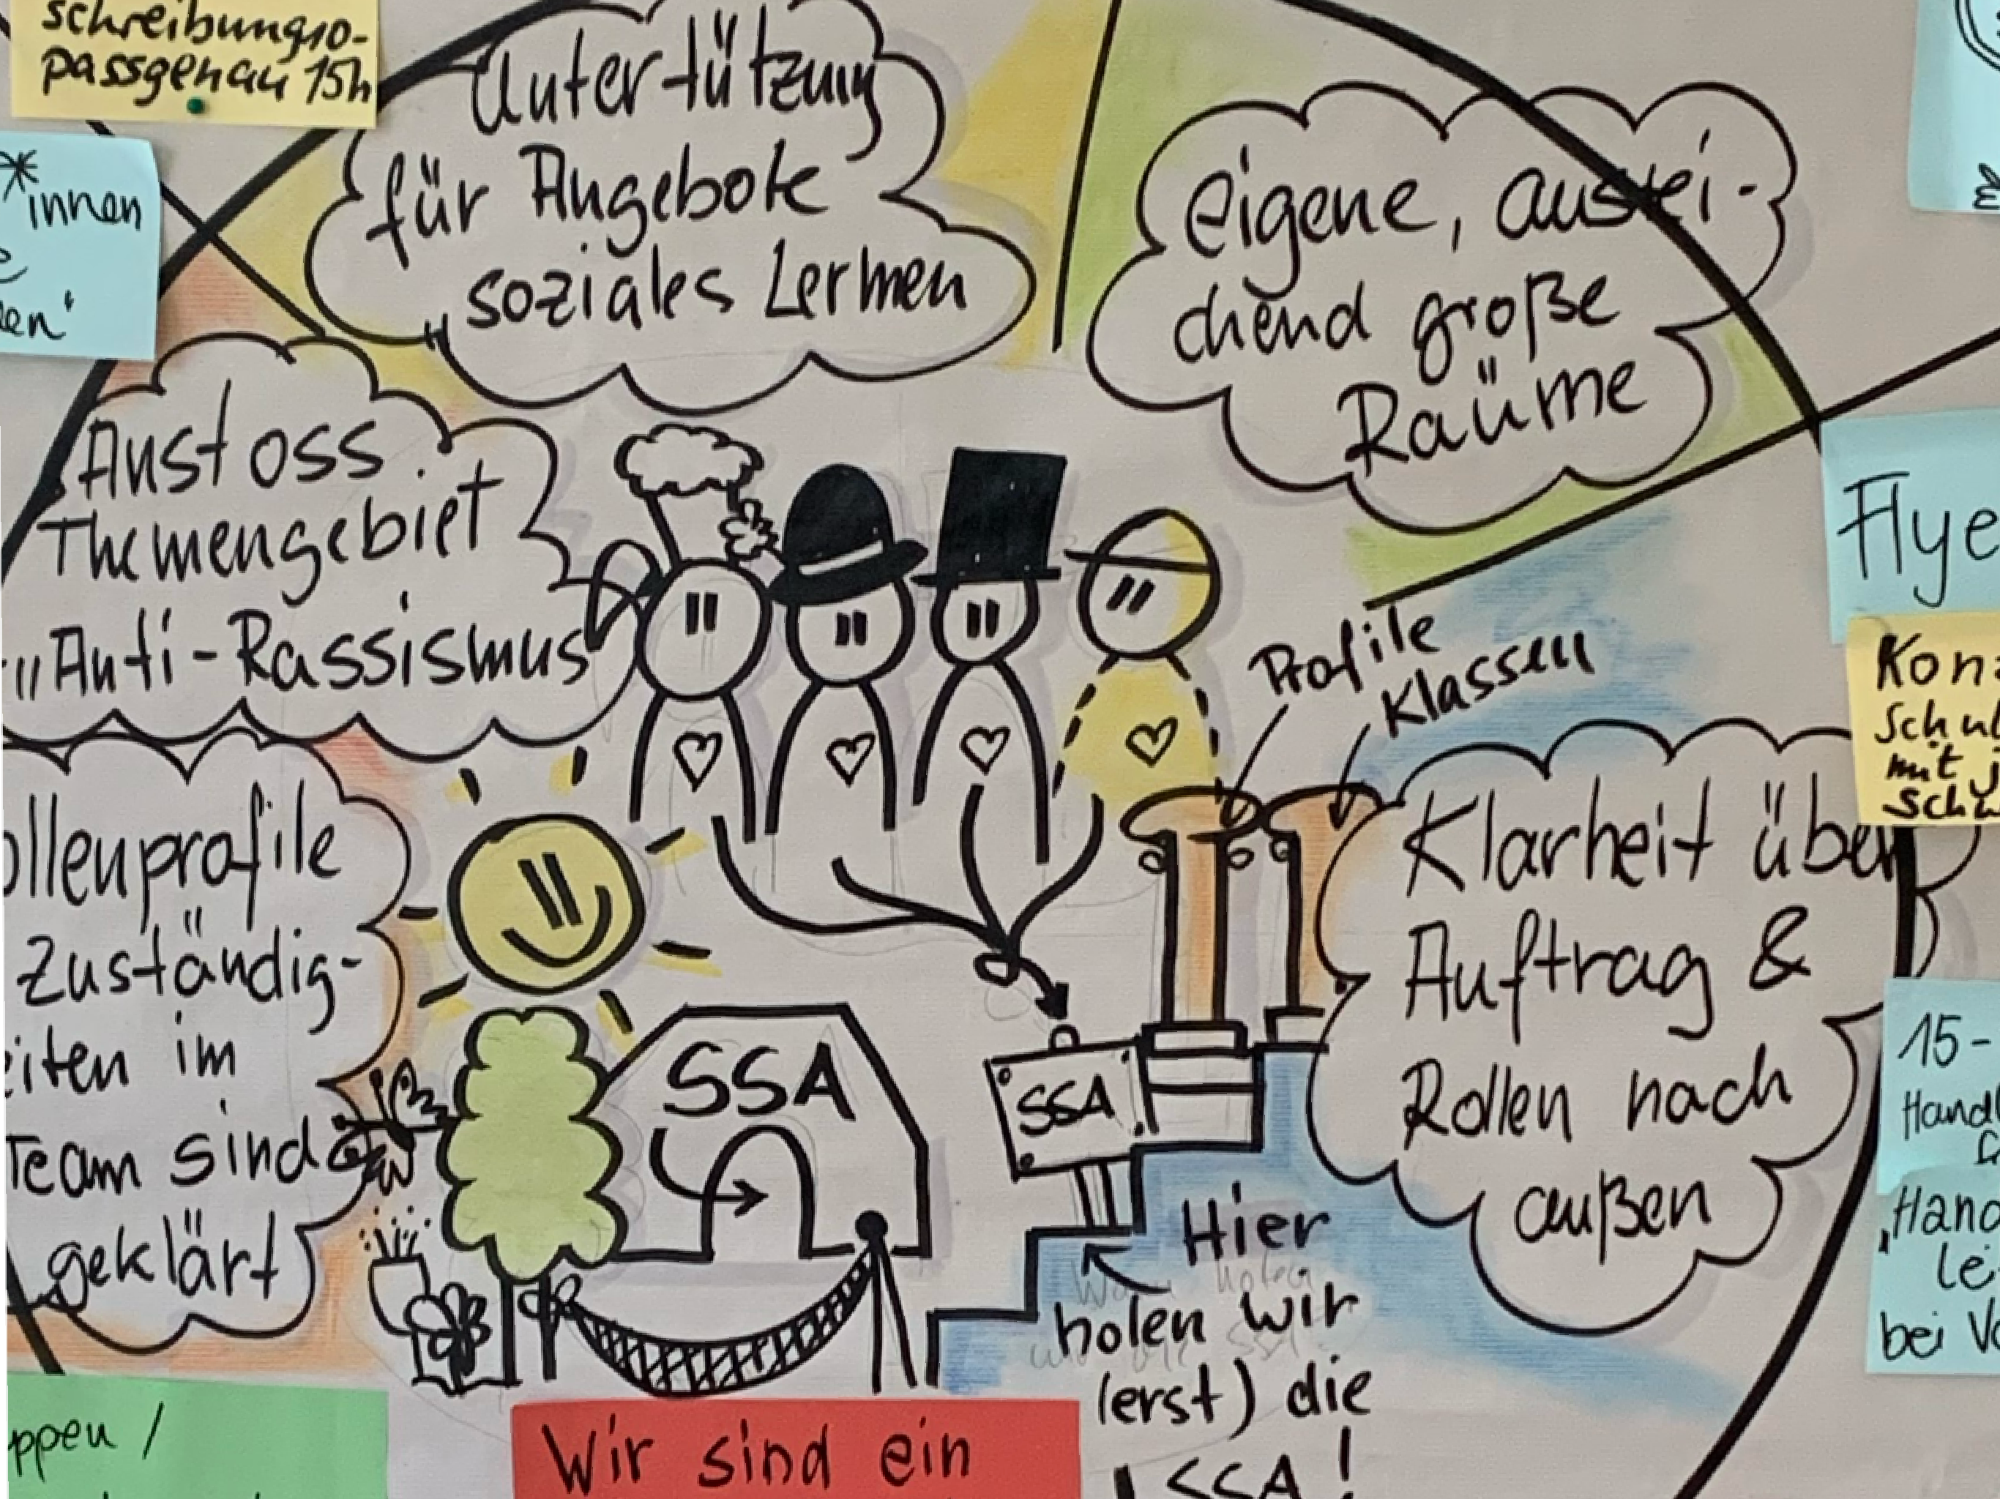 schreibungso-
passgenau 15h
*innen
Untertützung
für Angebote
"soziales Lermen
eigene, ausrei-
chend große
Räume
Anstoss
Themengebiet
"Anti-Rassismus
Flye
Profile
Klassen
Kon
Schul
mit j
Sch
ollenprofile
Zuständig-
eiten im
Team sind
geklärt
Klarheit über
Auftrag &
Rollen nach
außen
SSA
SSA
15-
Hand
Hier
holen wir
(erst) die
SSA!
"Hand
lei
bei Vo
ppen /
Wir sind ein